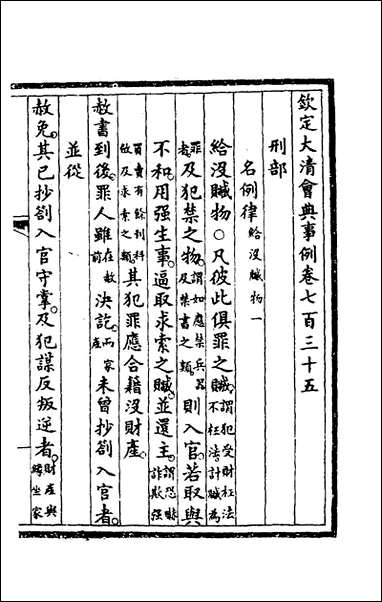 欽定大清會典事例卷七百三十五
刑部
名例律給沒贓物一
給沒贓物○凡彼此俱罪之贓。謂犯受財枉法不枉法計贓為
罪者。及犯禁之物。謂如應禁兵器及禁書之類。則入官。若取與
不和。用强生事。逼取求索之贓。並還主。謂恐嚇詐欺强
買賣有餘利科斂及求索之類。其犯罪應合籍沒財產。
赦書到後。罪人雖在赦前決訖。而家產未曾抄劄入官者。
並從
赦免。其已抄劄入官守掌。及犯謀反叛逆者。財產與緣坐家